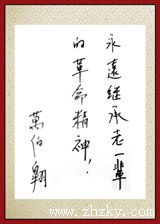 永遠继承老一輩
的革命精神！
萬伯翱
www.zhzky.com